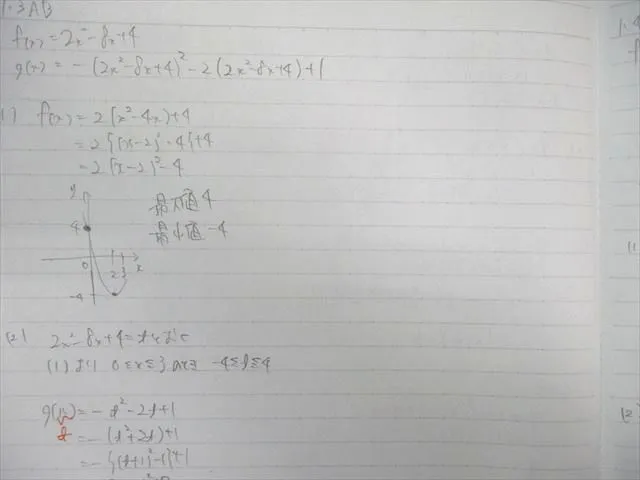 1.3AB
f(x)=2x²-8x+4
g(x)=-(2x²-8x+4)²-2(2x²-8x+4)+1
(1) f(x)=2(x²-4x)+4
=2{(x-2)²-4}+4
=2(x-2)²-4
y
最大値 4
4
最小値 -4
0 2 3 x
-4
(2) 2x²-8x+4=tとおく
(1)より 0≦x≦3のとき -4≦t≦4
g(x)=-t²-2t+1
t
=-(t²+2t)+1
=-{(t+1)²-1}+1
(1)
(2)